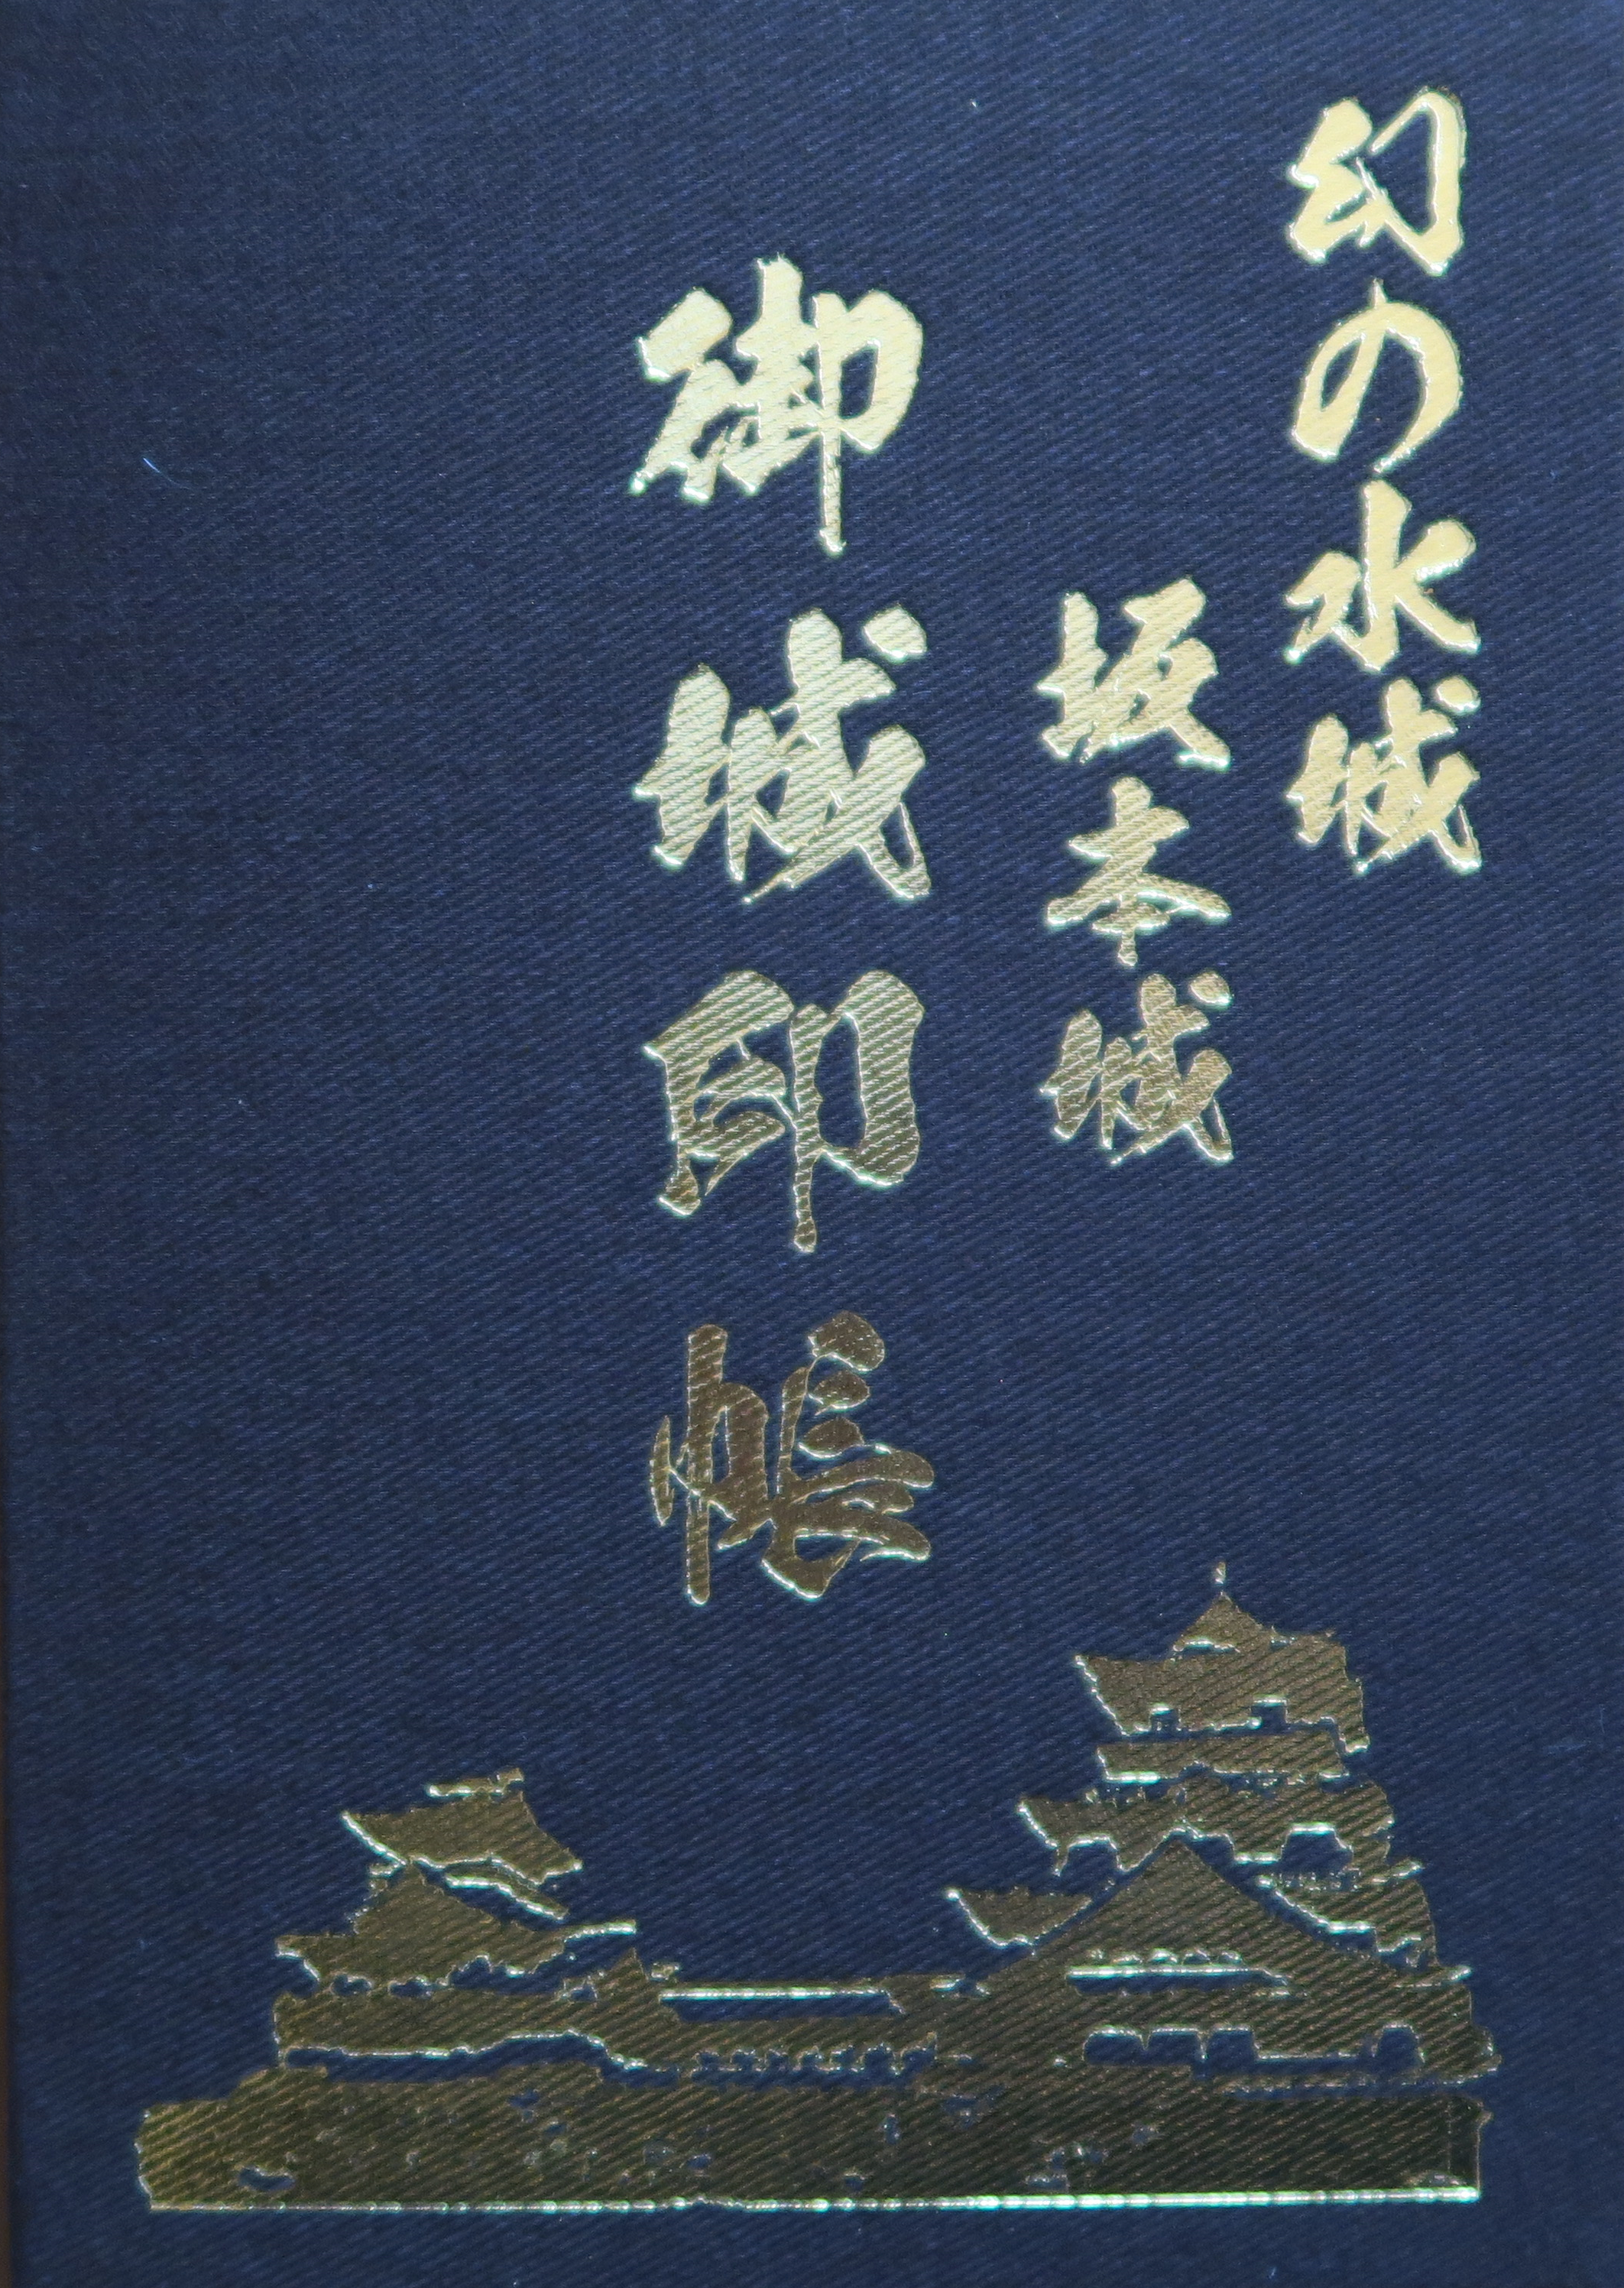 幻の水城
坂本城
御城印帳